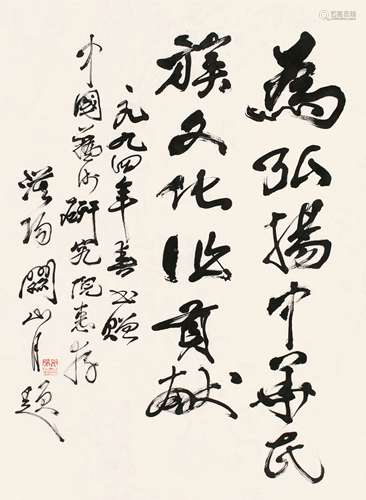 為弘揚中華民
族文化作貢獻
一九九四年春书贈
中國藝術研究院惠存
漠陽關山月題